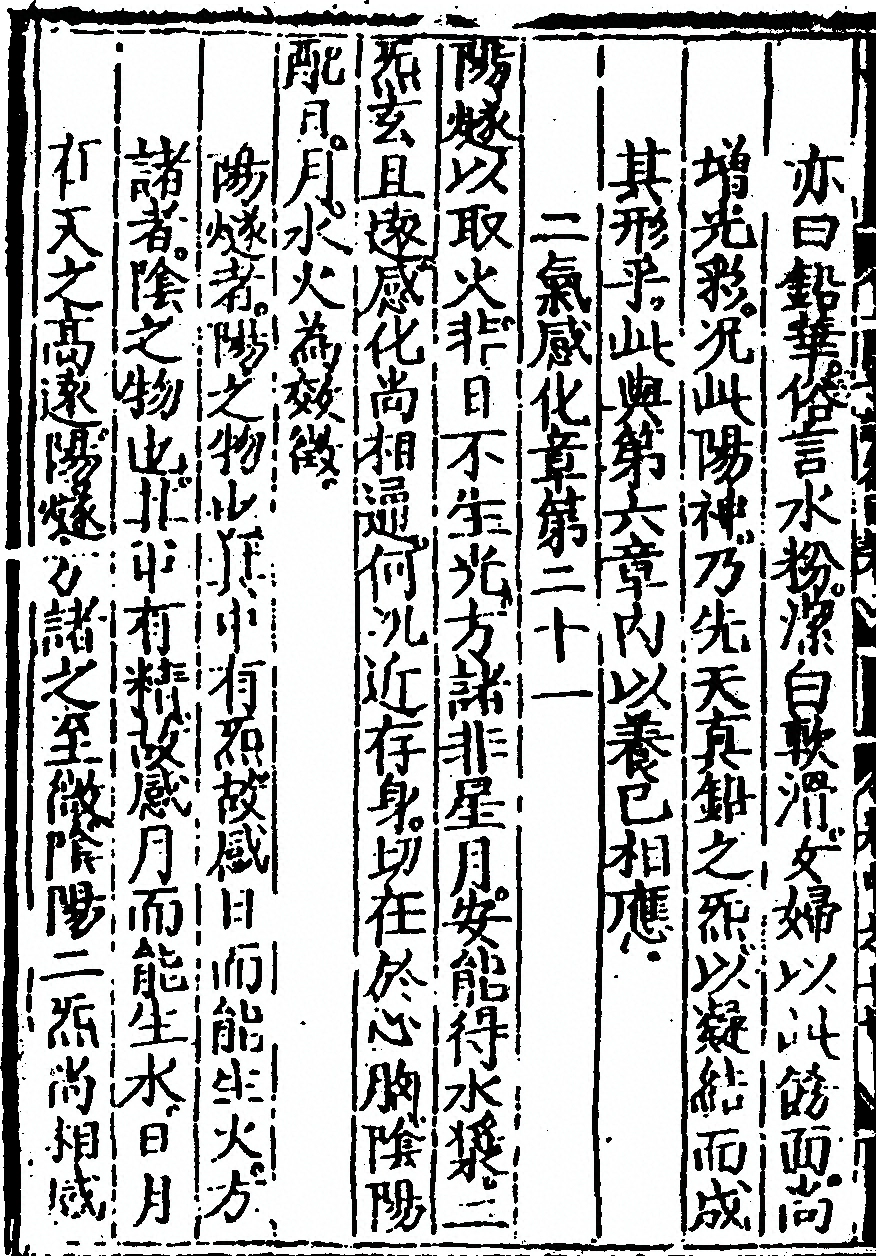 亦曰鉛華俗言水粉潔白軟滑女婦以此餙面尚
增光彩況此陽神乃先天真鉛之炁以凝結而成
其形乎此與第六章内以養已相應
二氣感化章第二十一
陽燧以取火非日不生光方諸非星月安能得水漿二
炁玄且遠感化尚相通何況近存身切在於心胸陰陽
配日月水火為效徵
陽燧者陽之物也其中有炁故感日而能生火方
諸者陰之物也其中有精故感月而能生水日月
在天之高遠陽燧方諸之至微陰陽二炁尚相感